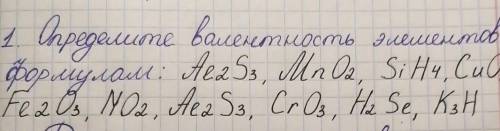 1. Определите валентность элементов
формулам: Al2S3, MnO2, SiH4, CuO
Fe2O3, NO2, Al2S3, CrO3, H2Se, K3H